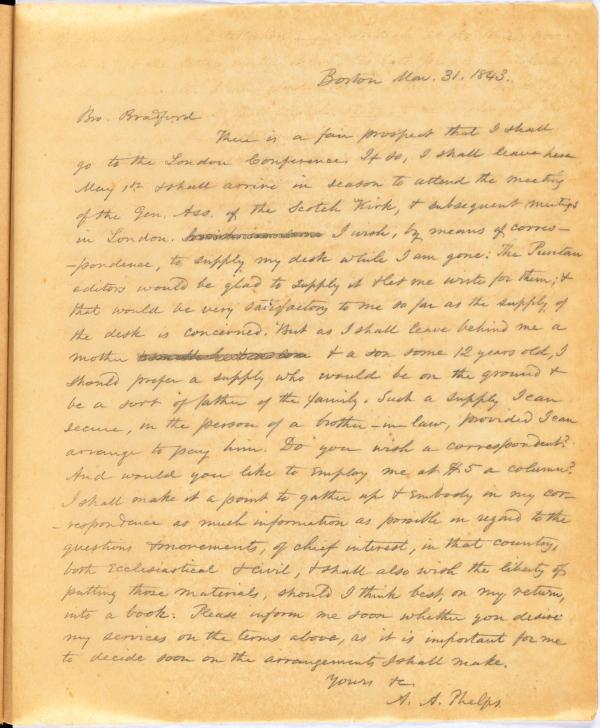 Boston Mar. 31. 1843.
Bro. Bradford
There is a fair prospect that I shall
go to the London Conference. If so, I shall leave here
May 1st & shall arrive in season to attend the meeting
of the Gen. Ass. of the Scotch Kirk, & subsequent meetings
in London. I wish, by means of corres-
-pondence, to supply my desk while I am gone. The Puritan
editors would be glad to supply it & let me write for them; &
that would be very satisfactory to me so far as the supply of
the desk is concerned. But as I shall leave behind me a
mother & a son some 12 years old, I
should prefer a supply who would be on the ground &
be a sort of father of the family. Such a supply I can
secure, in the person of a brother-in-law, provided I can
arrange to pay him. Do you wish a correspondent?
And would you like to employ me at $5 a column?
I shall make it a point to gather up & embody in my cor-
-respondence as much information as possible in regard to the
questions & movements, of chief interest, in that country,
both Ecclesiastical & civil, & shall also wish the liberty of
putting those materials, should I think best, on my return,
into a book. Please inform me soon whether you desire
my services on the terms above, as it is important for me
to decide soon on the arrangements I shall make.
Yours &c.
A. A. Phelps